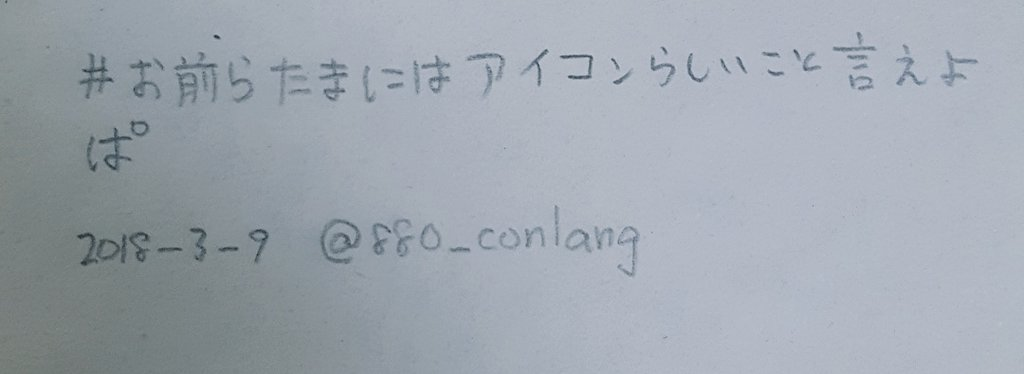 #お前らたまにはアイコンらしいこと言えよ
ぱ
2018-3-9 @880_conlang